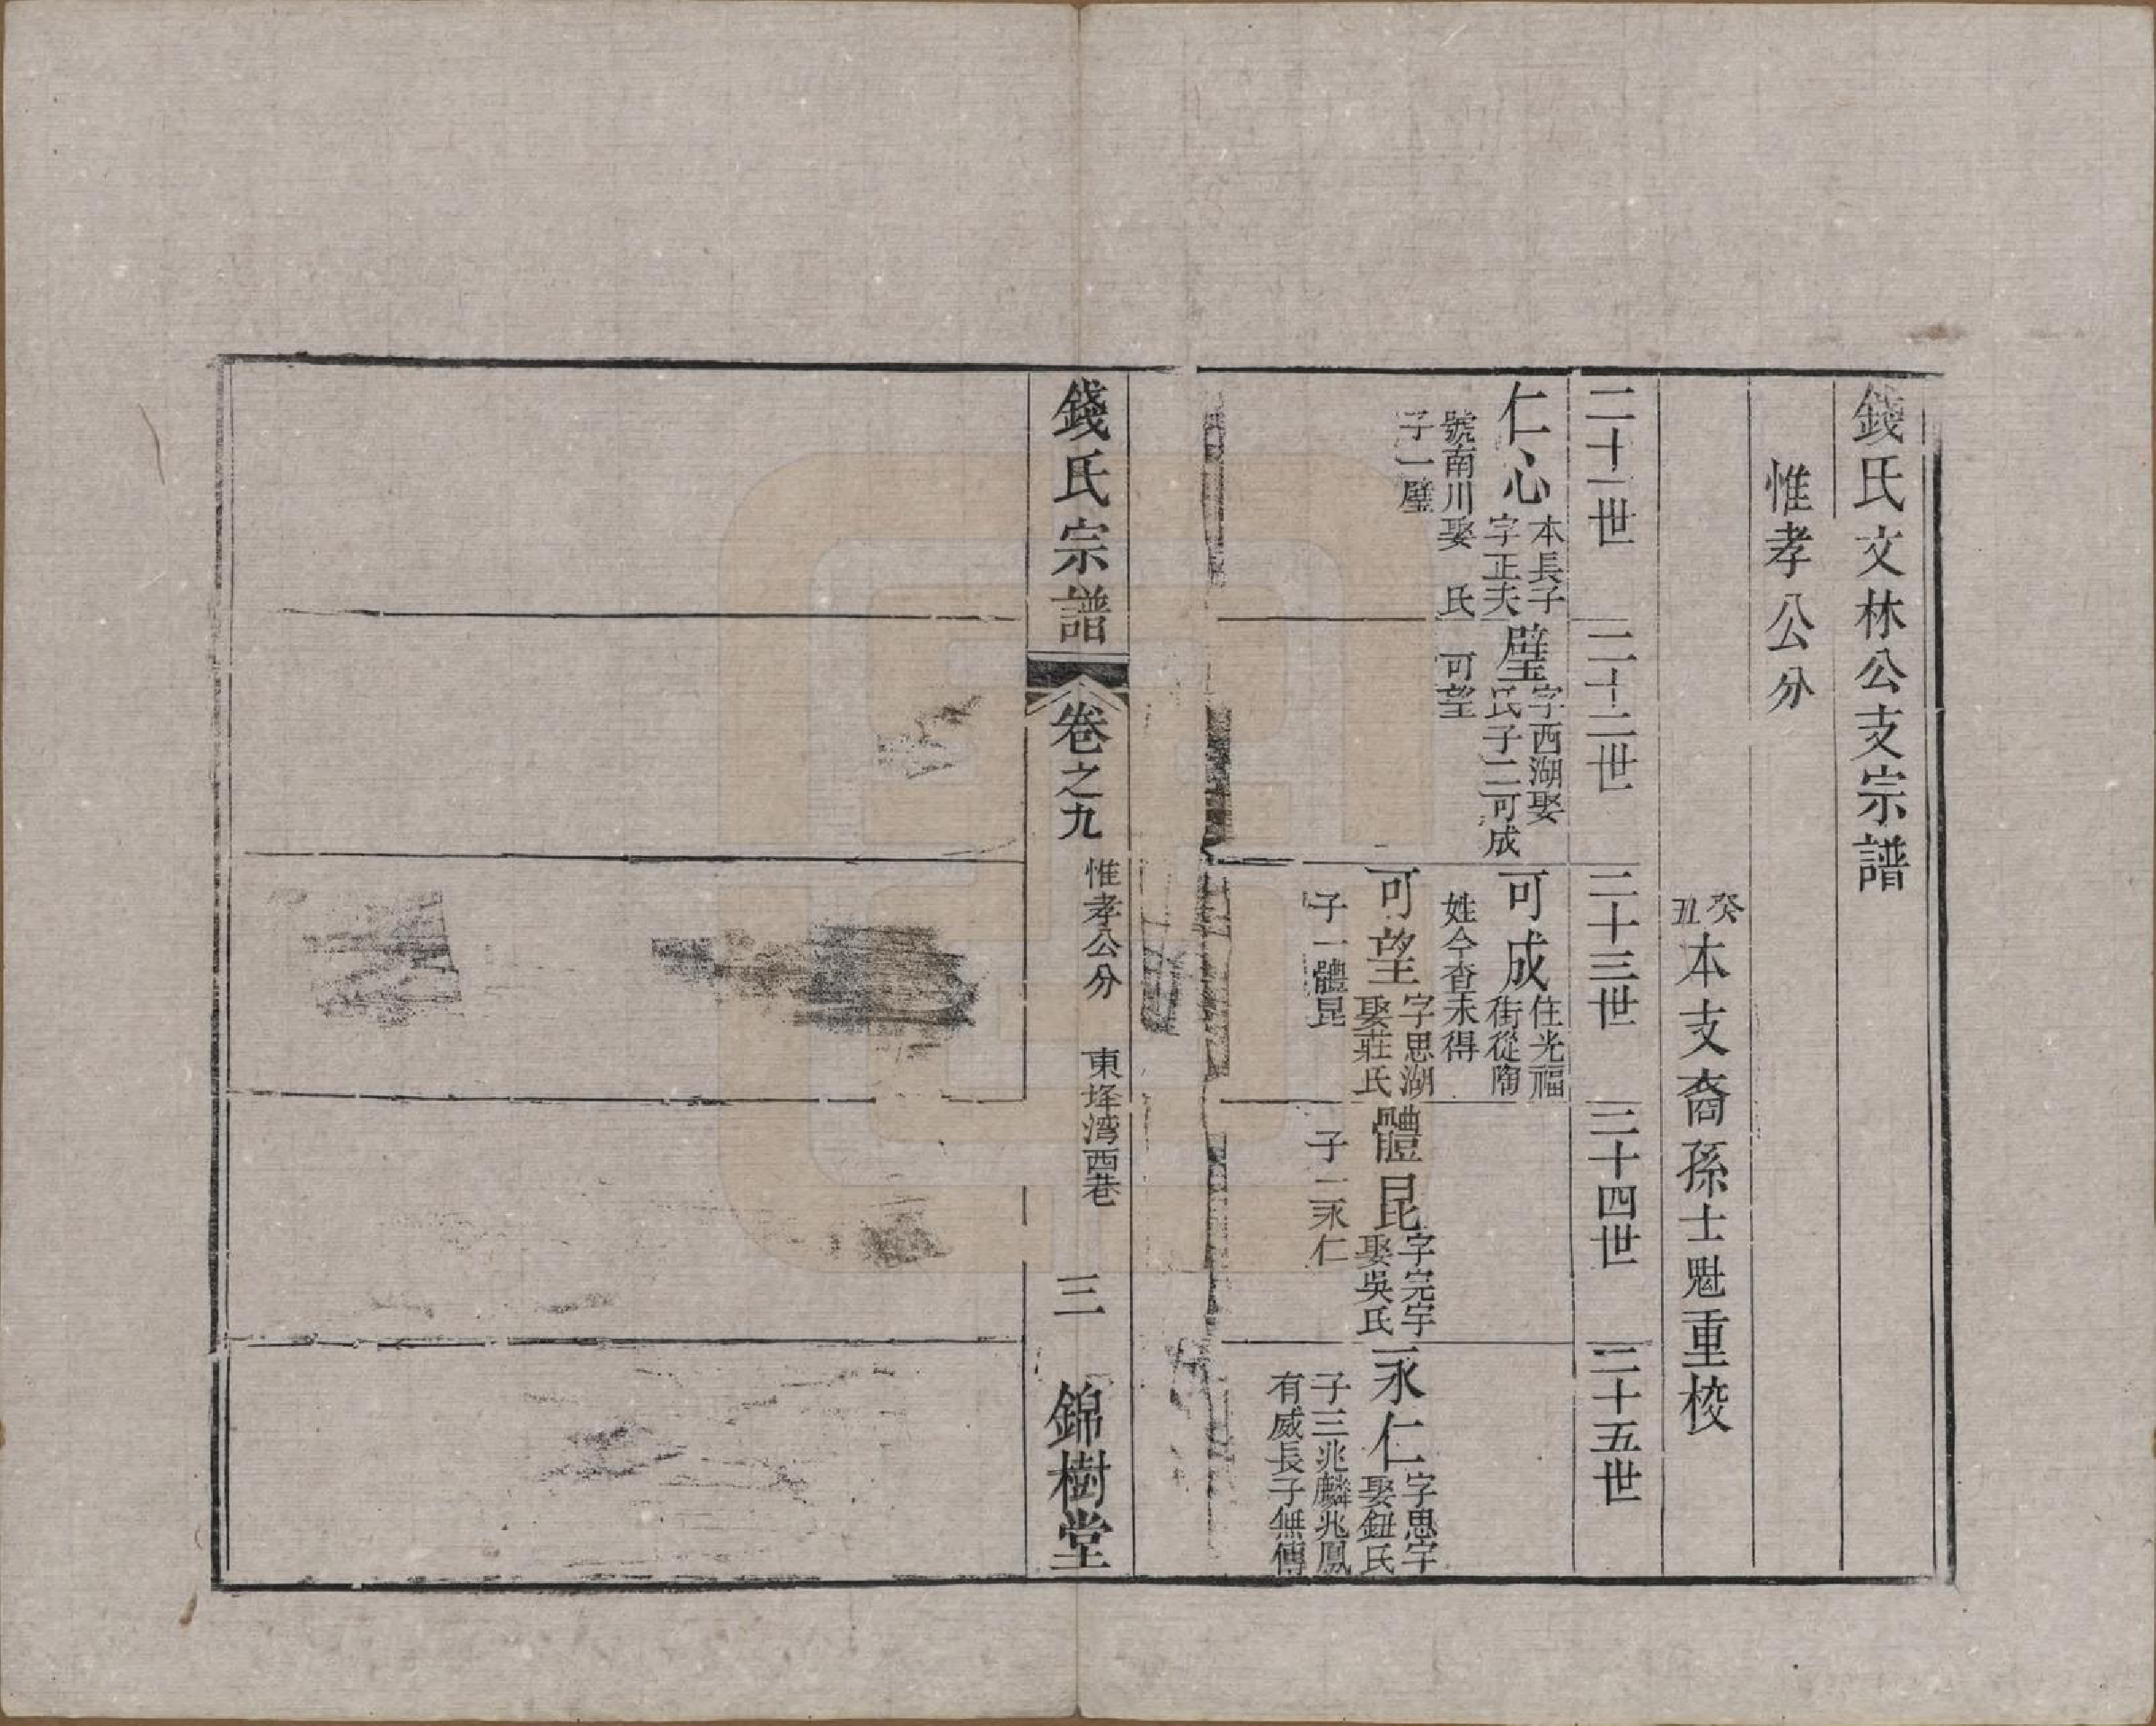 錢氏文林公支宗譜
惟孝公分
癸丑本支裔孫士魁重校
二十一世
二十二世
二十三世
二十四世
二十五世
仁心
本長子
字正夫
號南川娶 氏
子一璧
璧
字西湖娶
氏子二可成
可望
可成
住光福
街從
姓今查未得
可望
字思湖
娶莊氏
子一體昆
體昆
字完宇
娶吳氏
子一永仁
永仁
字思宇
娶鈕氏
子三兆麟兆鳳
有威長子無傳
錢氏宗譜
卷之九
惟孝公分 東垾湾西巷
三
錦樹堂